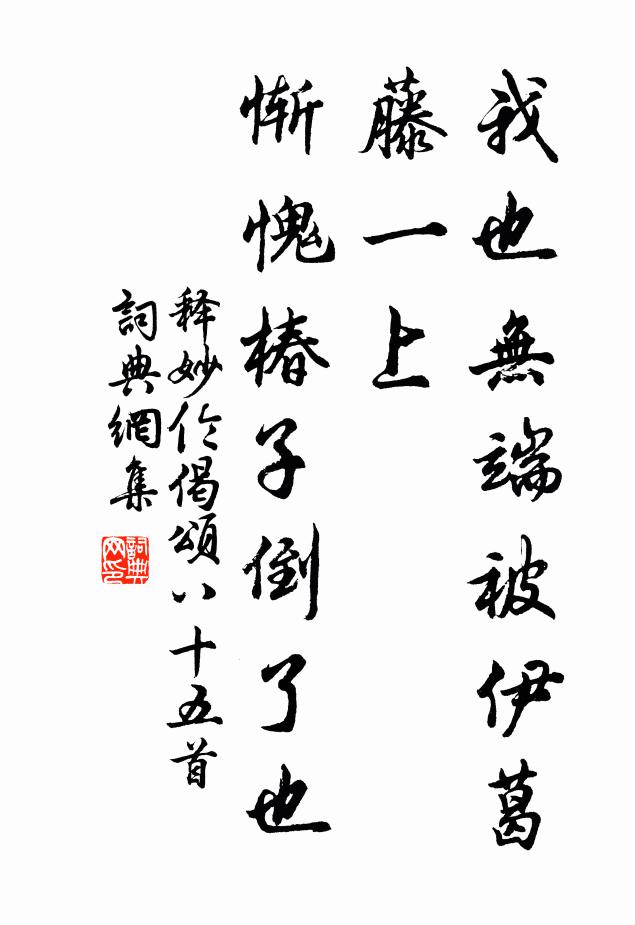 我也無端被伊葛
藤一上
慚愧椿子倒了也
释妙伦偈頌八十五首
詞典網集
詞典
网印